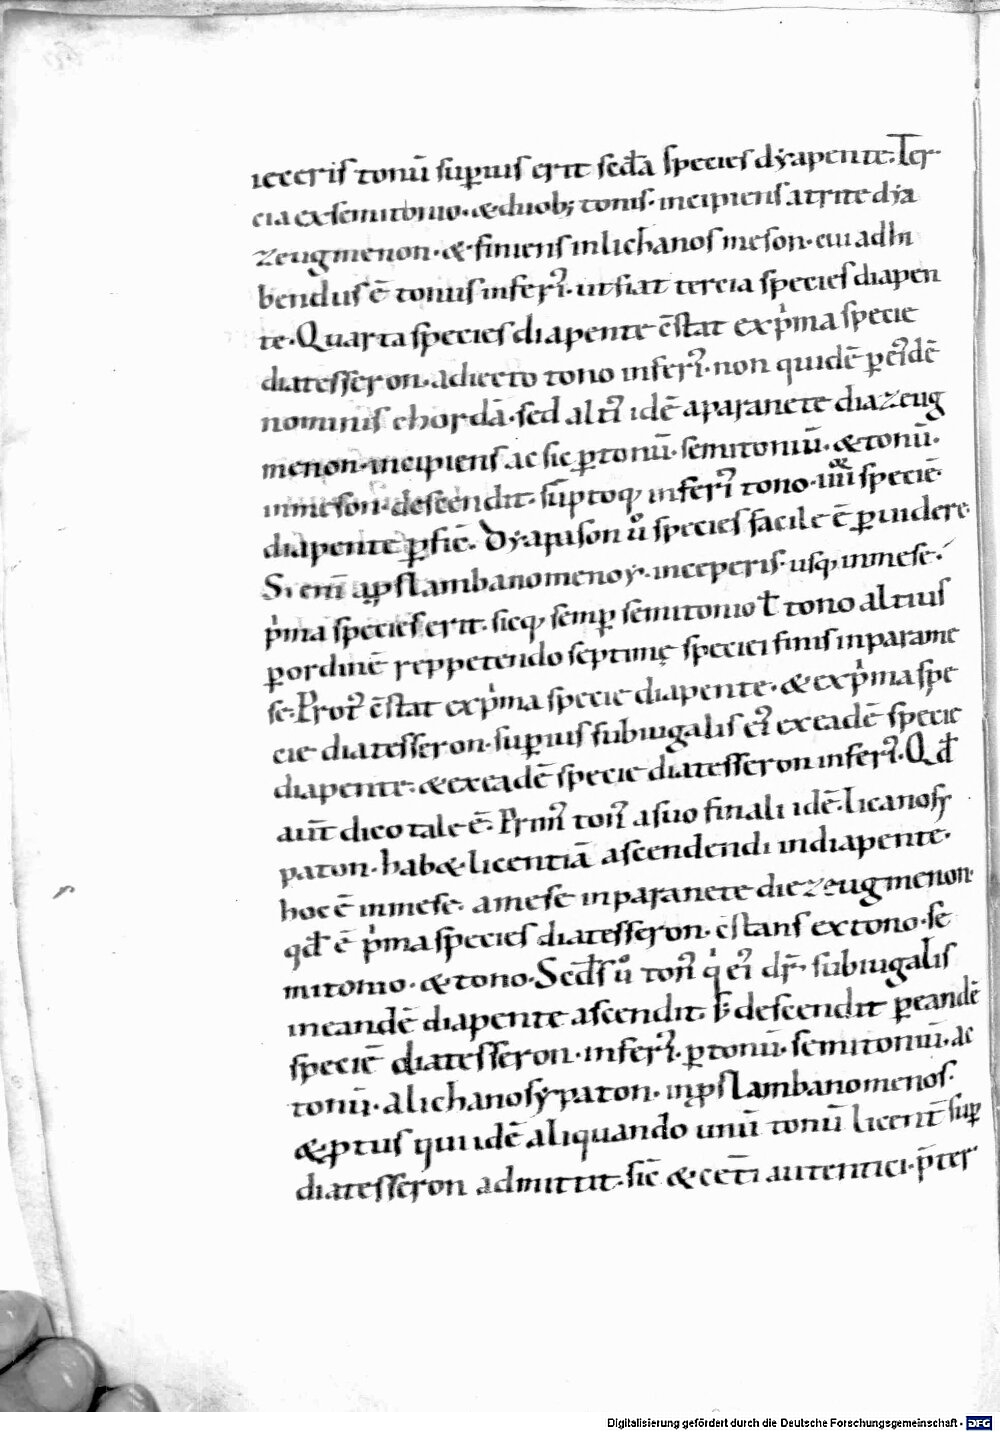 ieceris tonū sup̄ius erit secd̄a species dẏapente. Ter
cia ex semitonio. &duob; tonis. incipiens a trite dẏa
zeugmenon. & finiens in lichanos meson. cui adhi
bendus ē tonus inferi᷎. ut fiat tercia species diapen
te. Quarta species diapente ēstat ex p̍ma specie
diatesseron. adiecto tono inferi᷎. non quidē p̱ ei᷎dē
nominis chordā. sed alt᷎i idē a paranete diazeug
menon. incipiens ac sic p̱ tonū. semitoniū. &tonū.
inmeson. descendit. sūptoq; inferi᷎ tono. iiii speciē
diapente p̱ficē. Dẏapason u̾ species facile ē p̱uidere.
Si eni᷎ a p̱slambanomenoγ. inceperis. usq; inmese.
p̍ma species erit. sicq; semp̱ semitonio ł tono altius
p̱ ordinē reppetendo septimę speciei finis inparame
se. Prot᷎ ēstat ex p̍ma specie diapente. & ex p̍ma spe
cie diatesseron. sup̱ius subiugalis ei᷎ ex eadē specie
diapente. & ex eadē specie diatesseron inferi᷎. Qd̄
aut̄ dico tale ē. Prim᷎ ton᷎ a suo finali idē. licanosẏ
paton. hab& licentiā ascendendi in diapente.
hoc ē inmese. amese inparanete diezeugmenon.
qd̄ ē p̍ma species diatesseron. ēstans ex tono. se
mitonio. & tono. Secd̄s u̾ ton᷎ q̍ ei᷎ dr̄. subiugalis
in eandē diapente ascendit. s̄ descendit p̱ eandē
speciē diatesseron. inferi᷎. p̱ tonū. semitoniū. ac
tonū. a lichanosẏpaton. in p̱slambanomenos.
& p̱tus qui idē aliquando unū tonū licent̄ sup̱
diatesseron admittit. sic̄ & cet̄i autentici. p̄ter